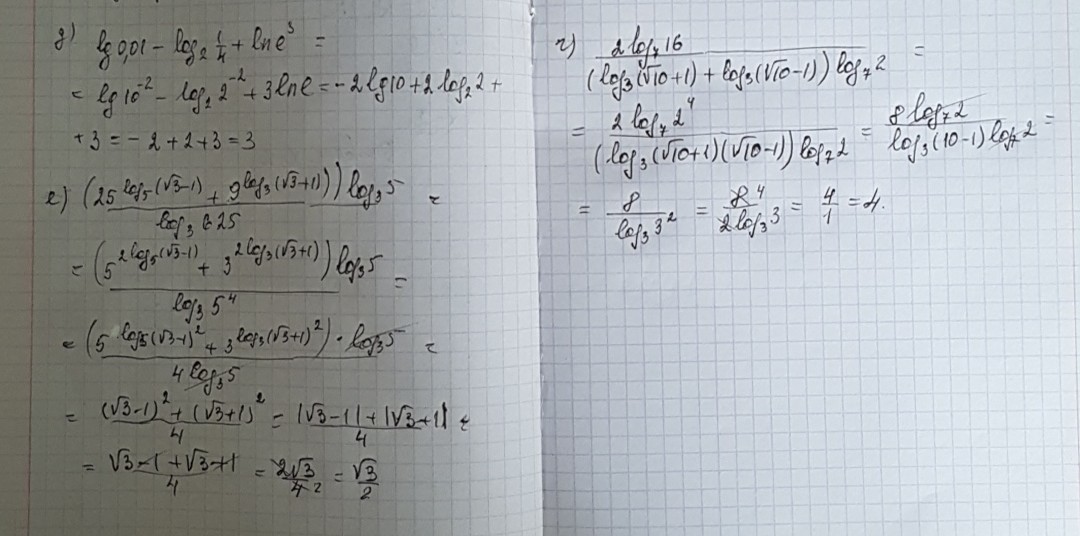 д) lg 0,01 - log₂ 1/4 + ln e³ =
= lg 10⁻² - log₂ 2⁻² + 3 ln e = -2 lg 10 + 2 log₂ 2 +
+ 3 = -2 + 2 + 3 = 3
е) (25^(log₅(√3-1)) + 9^(log₃(√3+1))) log₃ 5 / log₃ 625 =
= (5^(2 log₅(√3-1)) + 3^(2 log₃(√3+1))) log₃ 5 / log₃ 5⁴ =
= (5^(log₅(√3-1)²) + 3^(log₃(√3+1)²)) · log₃ 5 / 4 log₃ 5 =
= (√3-1)² + (√3+1)² / 4 = |√3-1| + |√3+1| / 4 =
= √3 - 1 + √3 + 1 / 4 = 2√3 / 4 2 = √3 / 2
г) 2 log₇ 16 / (log₃(√10+1) + log₃(√10-1)) log₇ 2 =
= 2 log₇ 2⁴ / (log₃(√10+1)(√10-1)) log₇ 2 = 8 log₇ 2 / log₃(10-1) log₇ 2 =
= 8 / log₃ 3² = 8 4 / 2 log₃ 3 = 4/1 = 4.